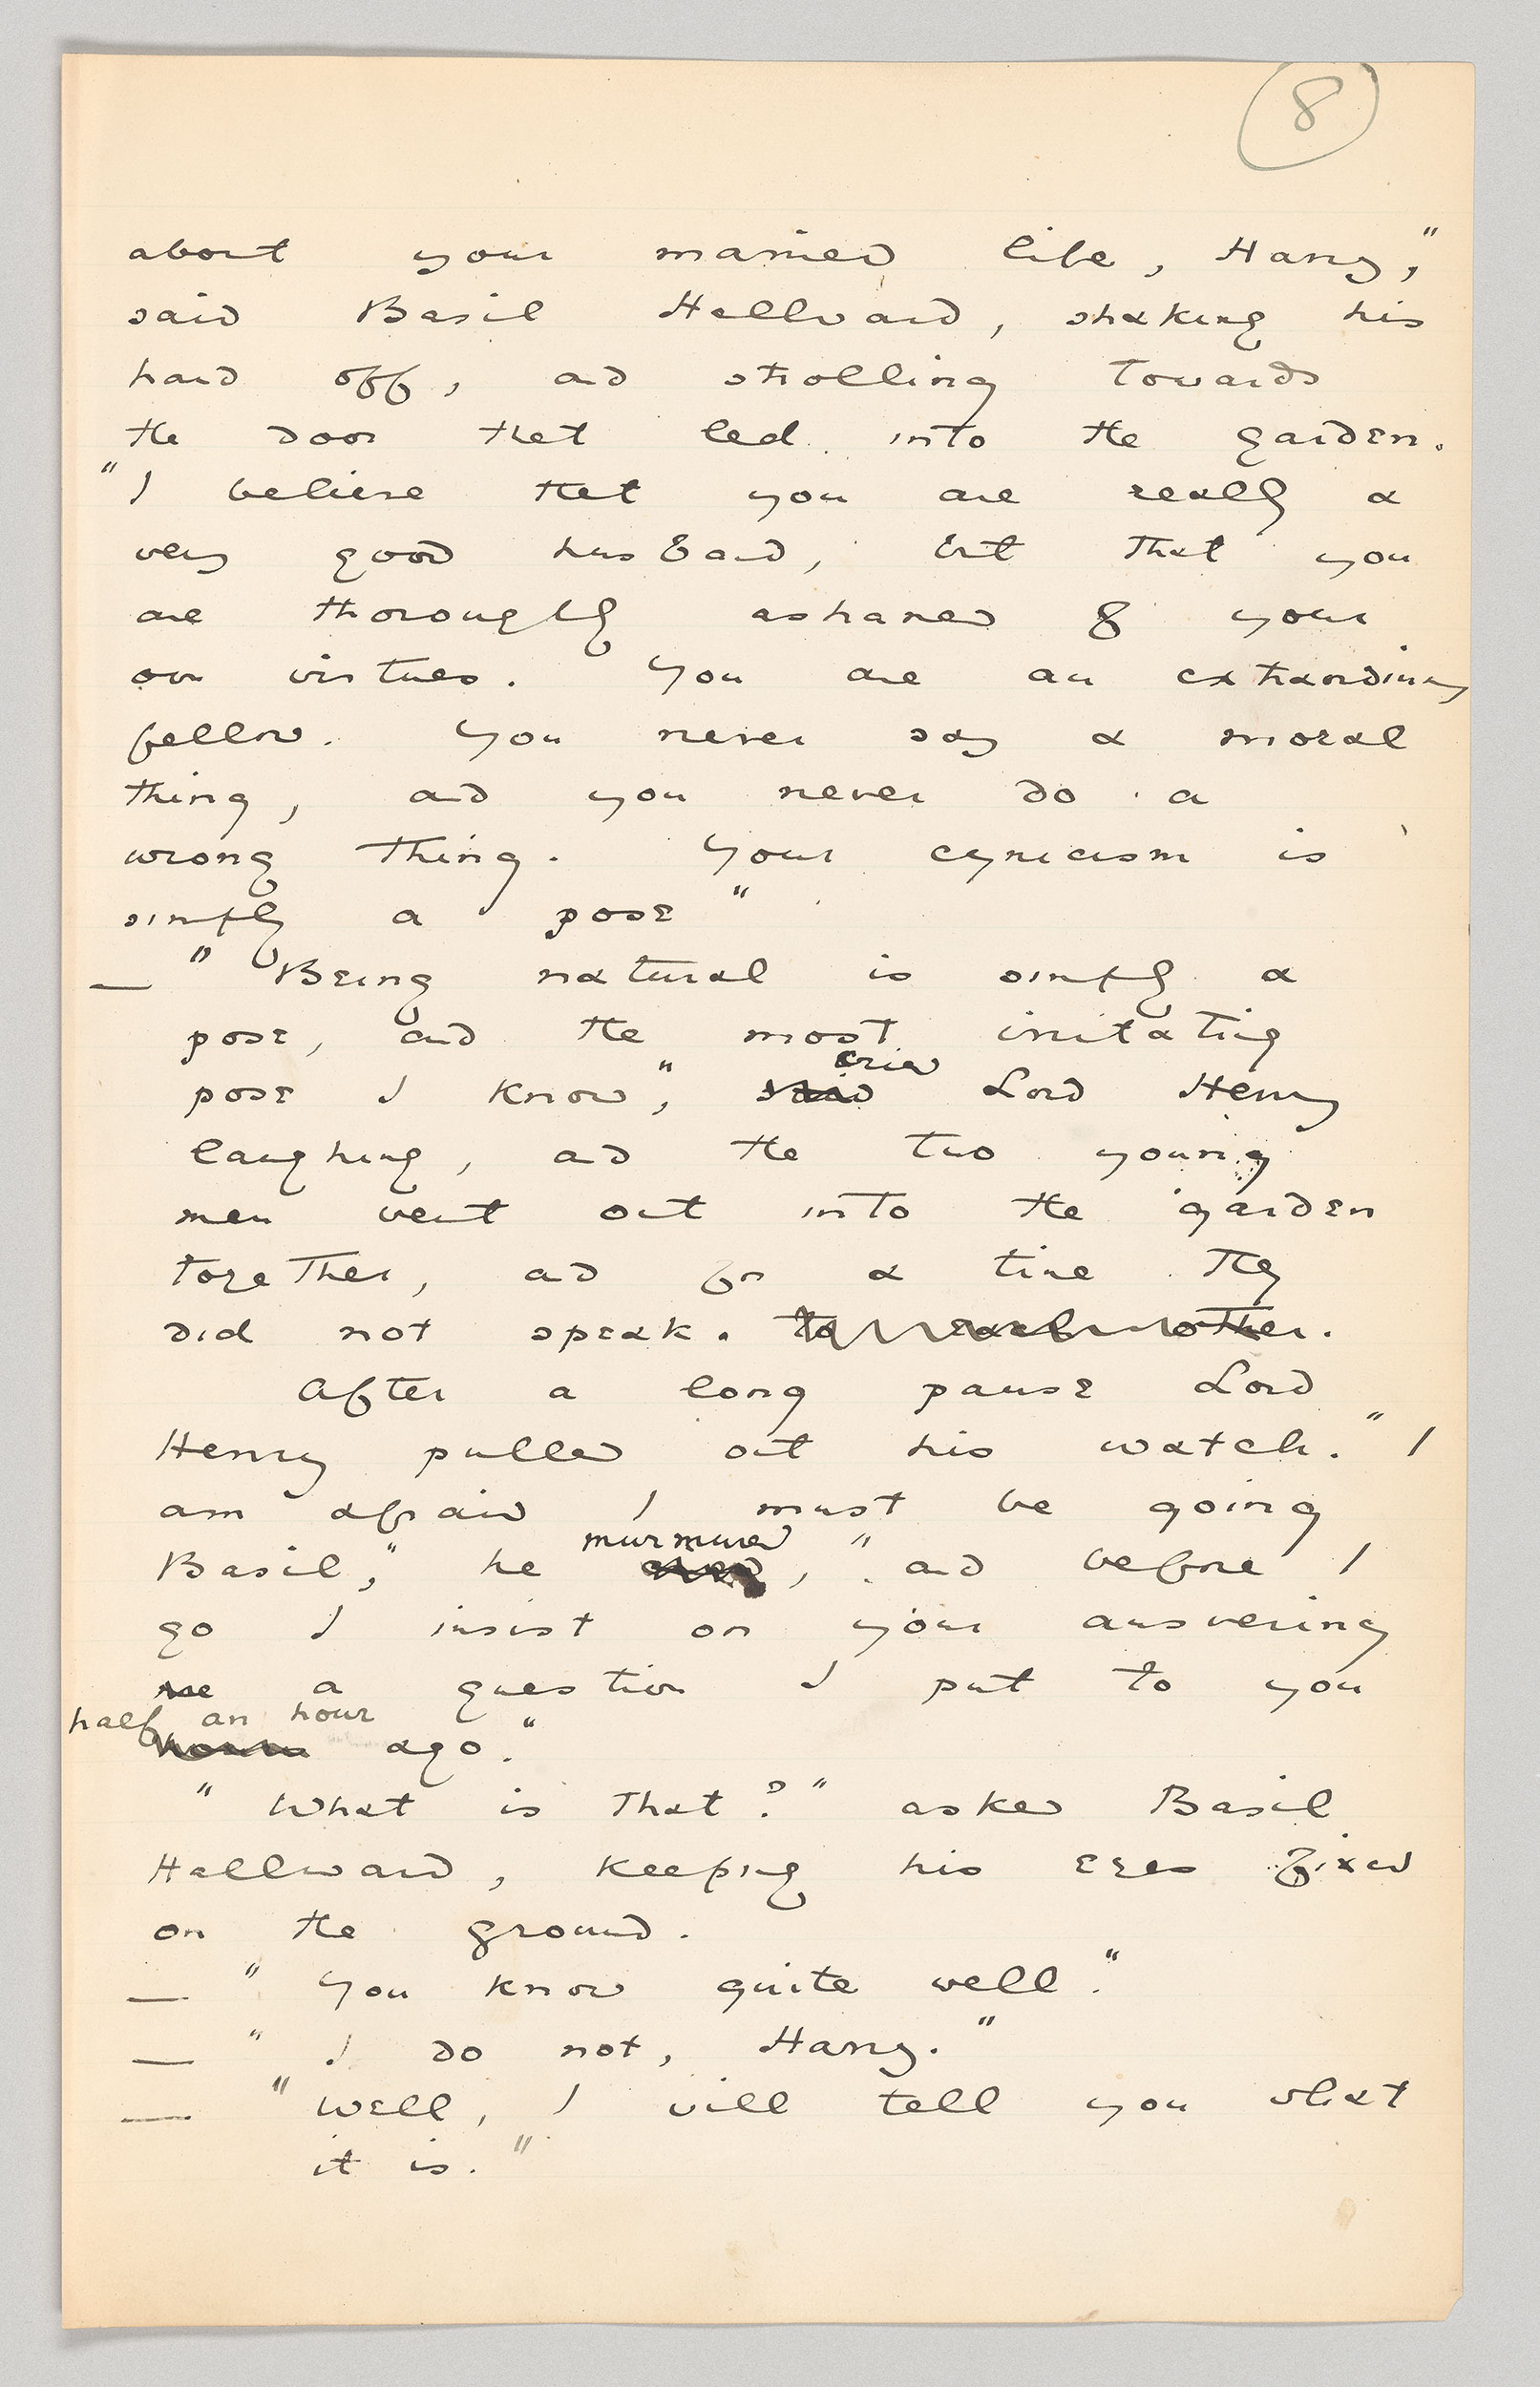 8
about your married life, Harry,"
said Basil Hallward, shaking his
hand off, and strolling towards
the door that led into the garden.
"I believe that you are really a
very good husband, but that you
are thoroughly ashamed of your
own virtues. You are an extraordinary
fellow. You never say a moral
thing, and you never do a
wrong thing. Your cynicism is
simply a pose"
— "Being natural is simply a
pose, and the most irritating
cried
pose I know," said Lord Henry
laughing, and the two young
men went out into the garden
together, and for a time they
did not speak. to each other.
After a long pause Lord
Henry pulled out his watch. "I
am afraid I must be going
murmured
Basil," he , "and before I
go I insist on your answering
me a question I put to you
half an hour
ago."
"What is that?" asked Basil
Hallward, keeping his eyes fixed
on the ground.
— "You know quite well."
— "I do not, Harry."
— "Well, I will tell you what
it is."